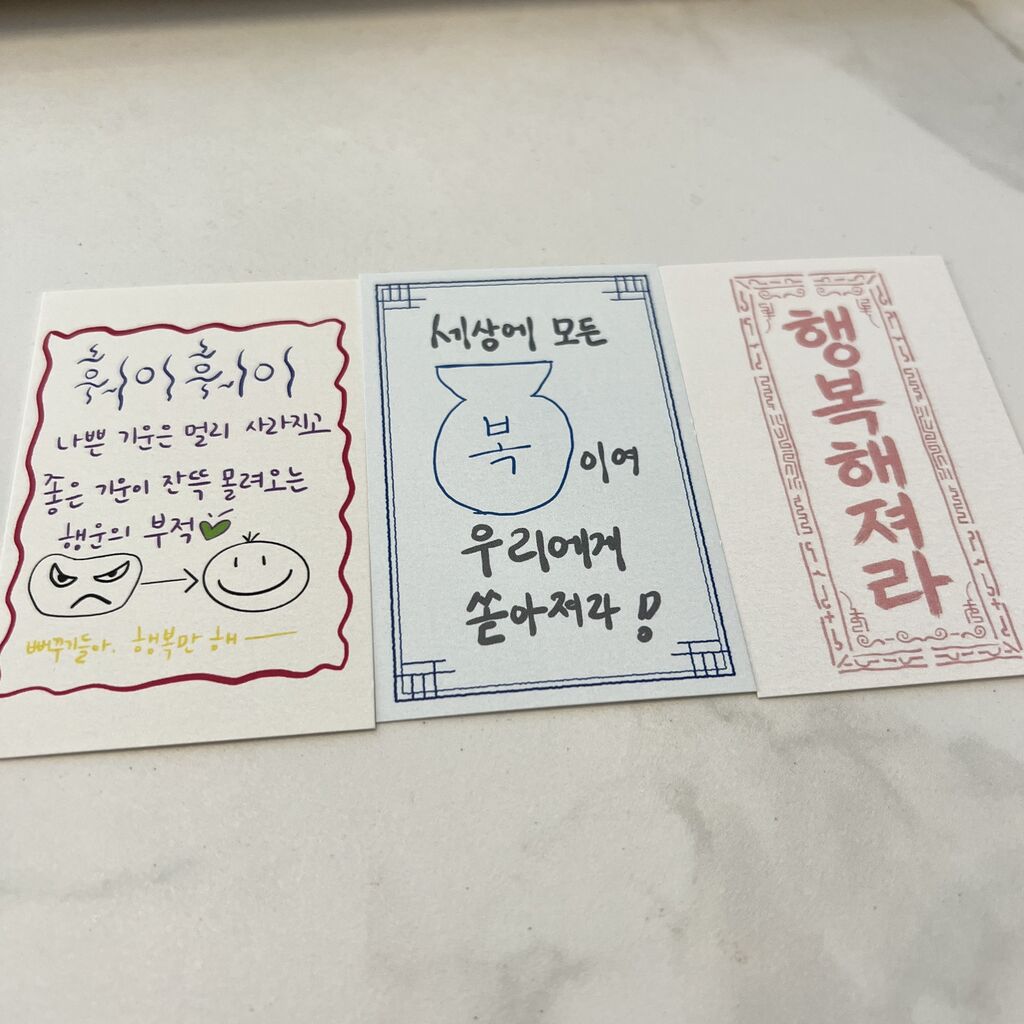 훠이훠이
나쁜 기운은 멀리 사라지고
좋은 기운이 잔뜩 몰려오는
행운의 부적
뻐꾸기들아. 행복만 해
세상에 모든
복
이여
우리에게
쏟아져라!
행복해져라